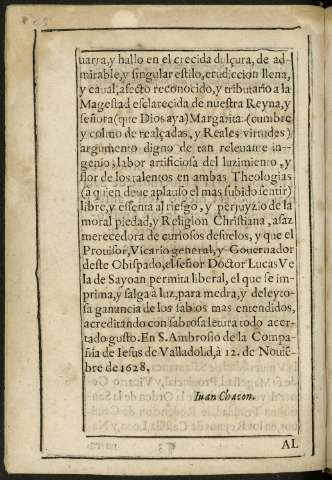 uarra, y hallo en el crecida dulçura, de ad-
mirable, y singular estilo, erudiccion llena,
y caual, afecto reconocido, y tributario a la
Magestad esclarecida de nuestra Reyna, y
señora (que Dios aya) Margarita (cumbre
y colmo de realçadas, y Reales virtudes)
argumento digno de tan releuante in-
genio; labor artificiosa del luzimiento, y
flor de los talentos en ambas Theologias
(a quien deue aplauso el mas subido sentir)
libre, y essenta al riesgo, y perjuyzio de la
moral piedad, y Religion Christiana, asaz
merecedora de curiosos desuelos, y que el
Prouisor, Vicario general, y Gouernador
deste Obispado, el señor Doctor Lucas Ve
la de Sayoan permita liberal, el que se im-
prima, y salga a luz, para medra, y deleyto-
sa ganancia de los sabios mas entendidos,
acreditando con sabrosa letura todo acer-
tado gusto. En S. Ambrosio de la Compa-
ñia de Iesus de Valladolid, à 12. de Nouié-
bre de 1628.
Iuan Chacon.
AL